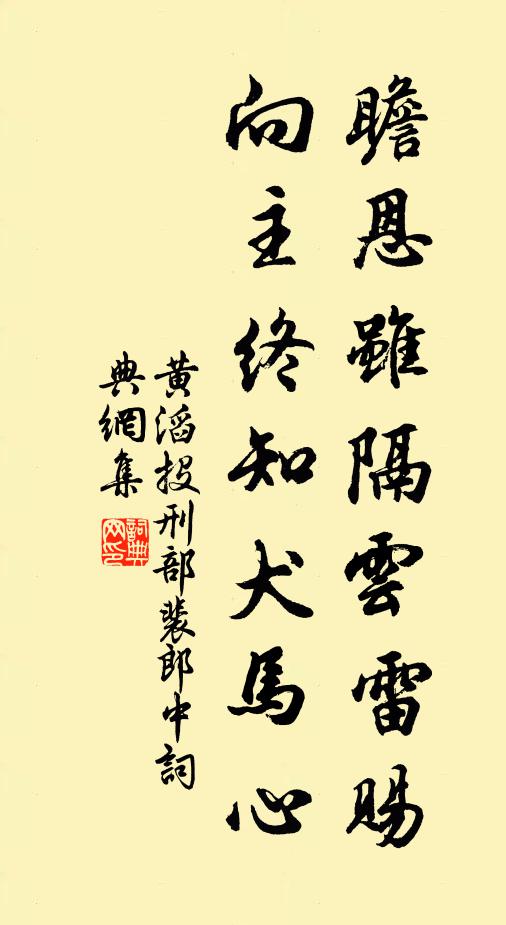 瞻恩雖隔雲雷賜
向主終知犬馬心
黃滔投刑部裴郎中詞
典網集
詞典網印